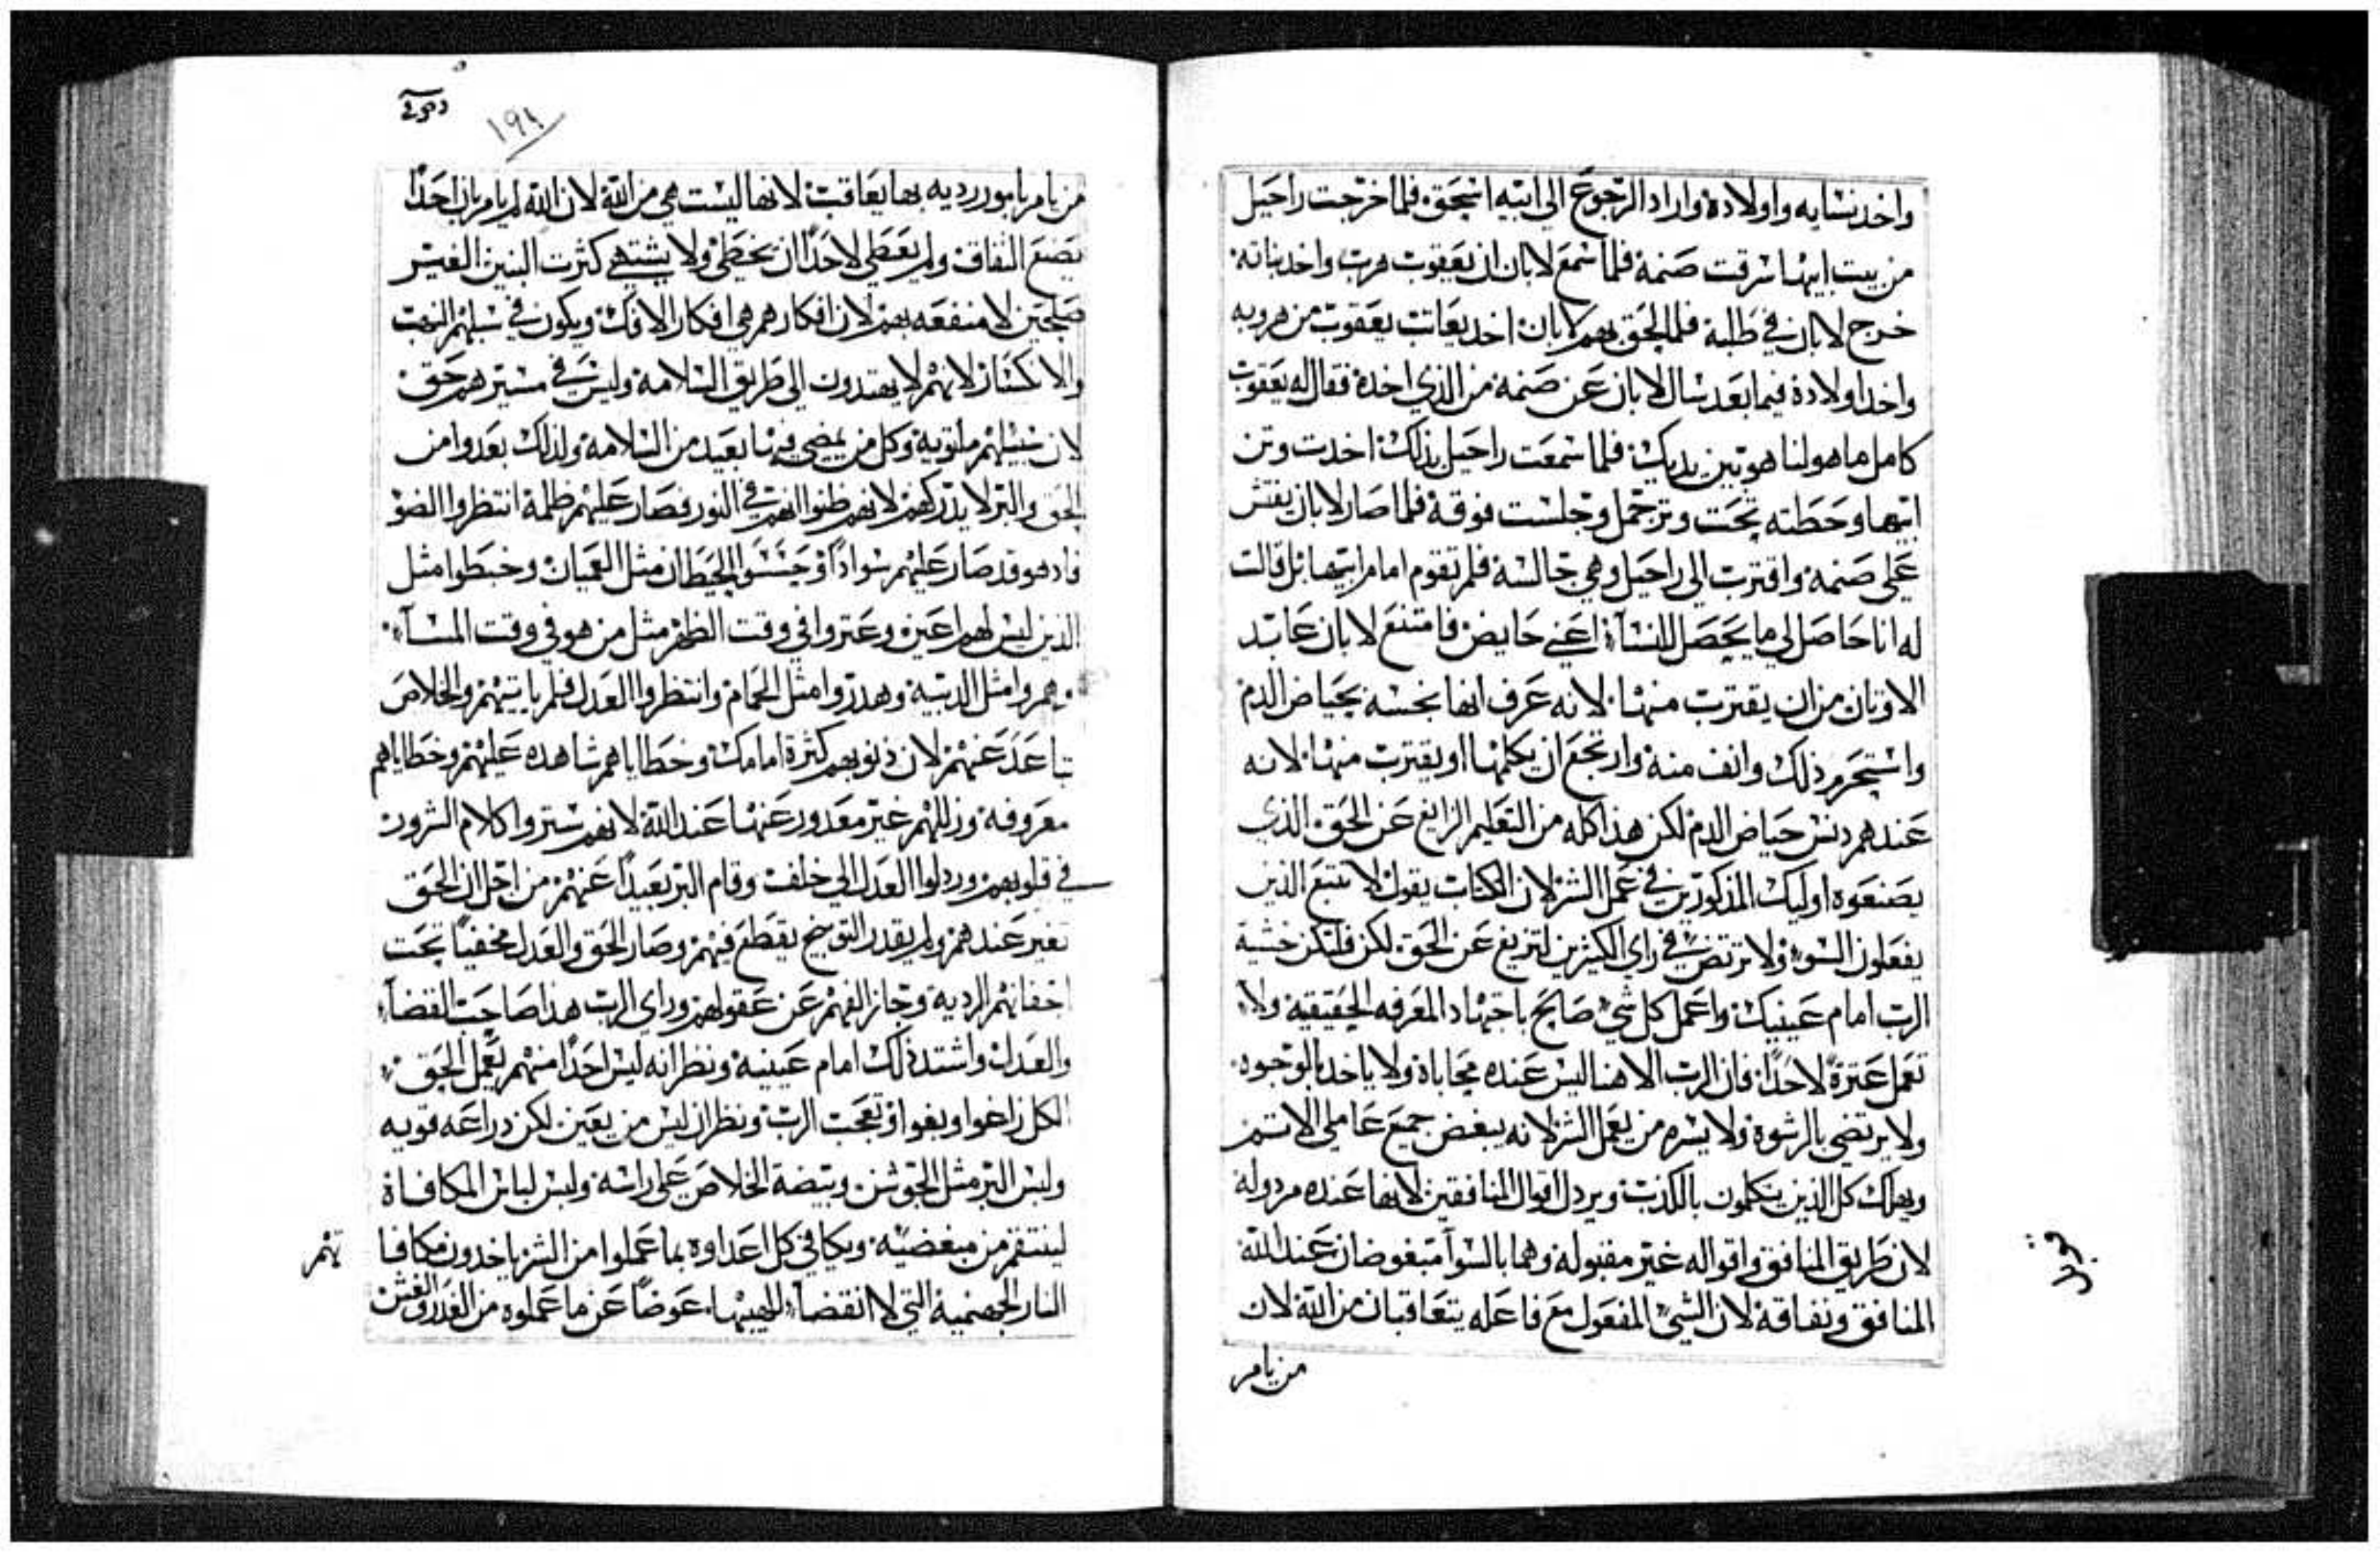 واخد نسايه واولاده واراد الرجوع الي ابيه اسحق فلما خرجت راحيل
من بيت ابيها سرقت صنمه فلما سمع لابان ان يعقوب هرب واخد بناته
خرج لابان في طلبه فلما لحق بهم لابان اخد يعاتب يعقوب من هروبه
واخد اولاده فيما بعد سال لابان عن صنمه من الذي اخده فقال له يعقوب
كامل ما هو لنا هو بين يديك فلما سمعت راحيل بذلك اخدت وتن
ابيها وحطته تحت وتر جمل وجلست فوقه فلما صار لابان يفتش
علي صنمه واقترب الي راحيل وهي جالسه فلم تقوم امام ابيها بل قالت
له انا حاصل لي ما يحصل للنسآء اعني حايض فامتنع لابان عابد
الاوتان من ان يقترب منها لانه عرف انها نجسه بحياض الدم
واستحرم ذلك وانف منه وارتجع ان يكلمها او يقترب منها لانه
عندهم دنس حياض الدم لكن هذا كله من التعليم الزايغ عن الحق الذي
يصنعوه اوليك المذكورين في عمل الشر لان الكتاب يقول لا تتبع الذين
يفعلون السوء ولا ترتضي في راي الكثيرين لتزيغ عن الحق لكن فلتكن خشية
الرب امام عينيك واعمل كل شي صالح باجتهاد المعرفه الحقيقيه ولا
تعمل عترة لاحدا فان الرب الاهنا ليس عنده محاباه ولا ياخد بالوجوه
ولا يرتضي بالرشوة ولا يسره من يعمل الشر لانه يبغض جميع عاملي الاتم
ويهلك كل الذين يتكلمون بالكذب ويردل اقوال المنافقين لانها عنده مردوله
لان طريق المنافق واقواله غير مقبوله وهما بالسوآ مبغوضان عند الله
المنافق ونفاقه لان الشي المفعول مع فاعله يتعاقبان من الله لان
من يامر
١٩١
من يامر بامور رديه بها يعاقب لانها ليست هي من الله لان الله لم يامر بان احدًا
يصنع النفاق ولم يعطي لاحدًا ان يخطي ولا يشتهي كثرت البنين الغير
صالحين لا منفعه بهم لان افكارهم هي افكار الافك ويكون في سبلهم النهب
والانكسار لانهم لا يهتدون الي طريق السلامه وليس في مسيرهم حق
لان سبيلهم ملتويه وكل من يمضي فيها بعيد من السلامه ولذلك بعدوا من
الحق والبر لا يدركهم لانهم ظنوا انهم في النور فصار عليهم ظلمه انتظروا الضو
فادهو قد صار عليهم سوادًا وجسسوا الحيطان مثل العميان وخبطوا مثل
الذين ليس لهم اعين وعتروا في وقت الظهر مثل من هو في وقت المسآء
وهمروا مثل الدبيه وهدروا مثل الحمام وانتظروا العدل فلم ياتيهم والخلاص
تباعد عنهم لان ذنوبهم كثرة امامك وخطاياهم شاهده عليهم وخطاياهم
معروفه وزللهم غير معدور عنها عند الله لانهم ستروا كلام الشرور
في قلوبهم وردلوا العدل الي خلف وقام البر بعيدًا عنهم من اجل ان الحق
تغير عندهم ولم يقدر التوبيخ يقطع فيهم وصار الحق والعدل مخفيًا تحت
اخفانهم الرديه وجاز الفهم عن عقولهم وراي الرب هذا صاحب القضآء
والعدل واشتد ذلك امام عينيه ونظر انه ليس احدًا منهم يعمل الحق
الكل زاغوا وبغوا وتعجب الرب ونظر ان ليس من يعين لكن دراعه قويه
ولبس البر مثل الجوشن وبيضة الخلاص علي راسه ولبس لباس المكافاة
لينتقم من مبغضيه ويكافي كل اعداوه بما عملوا من الشر ياخدون مكافا
تهم
النار الجهنمية التي لا انقضآء للهيبها عوضًا عن ما عملوه من الغدر والغش